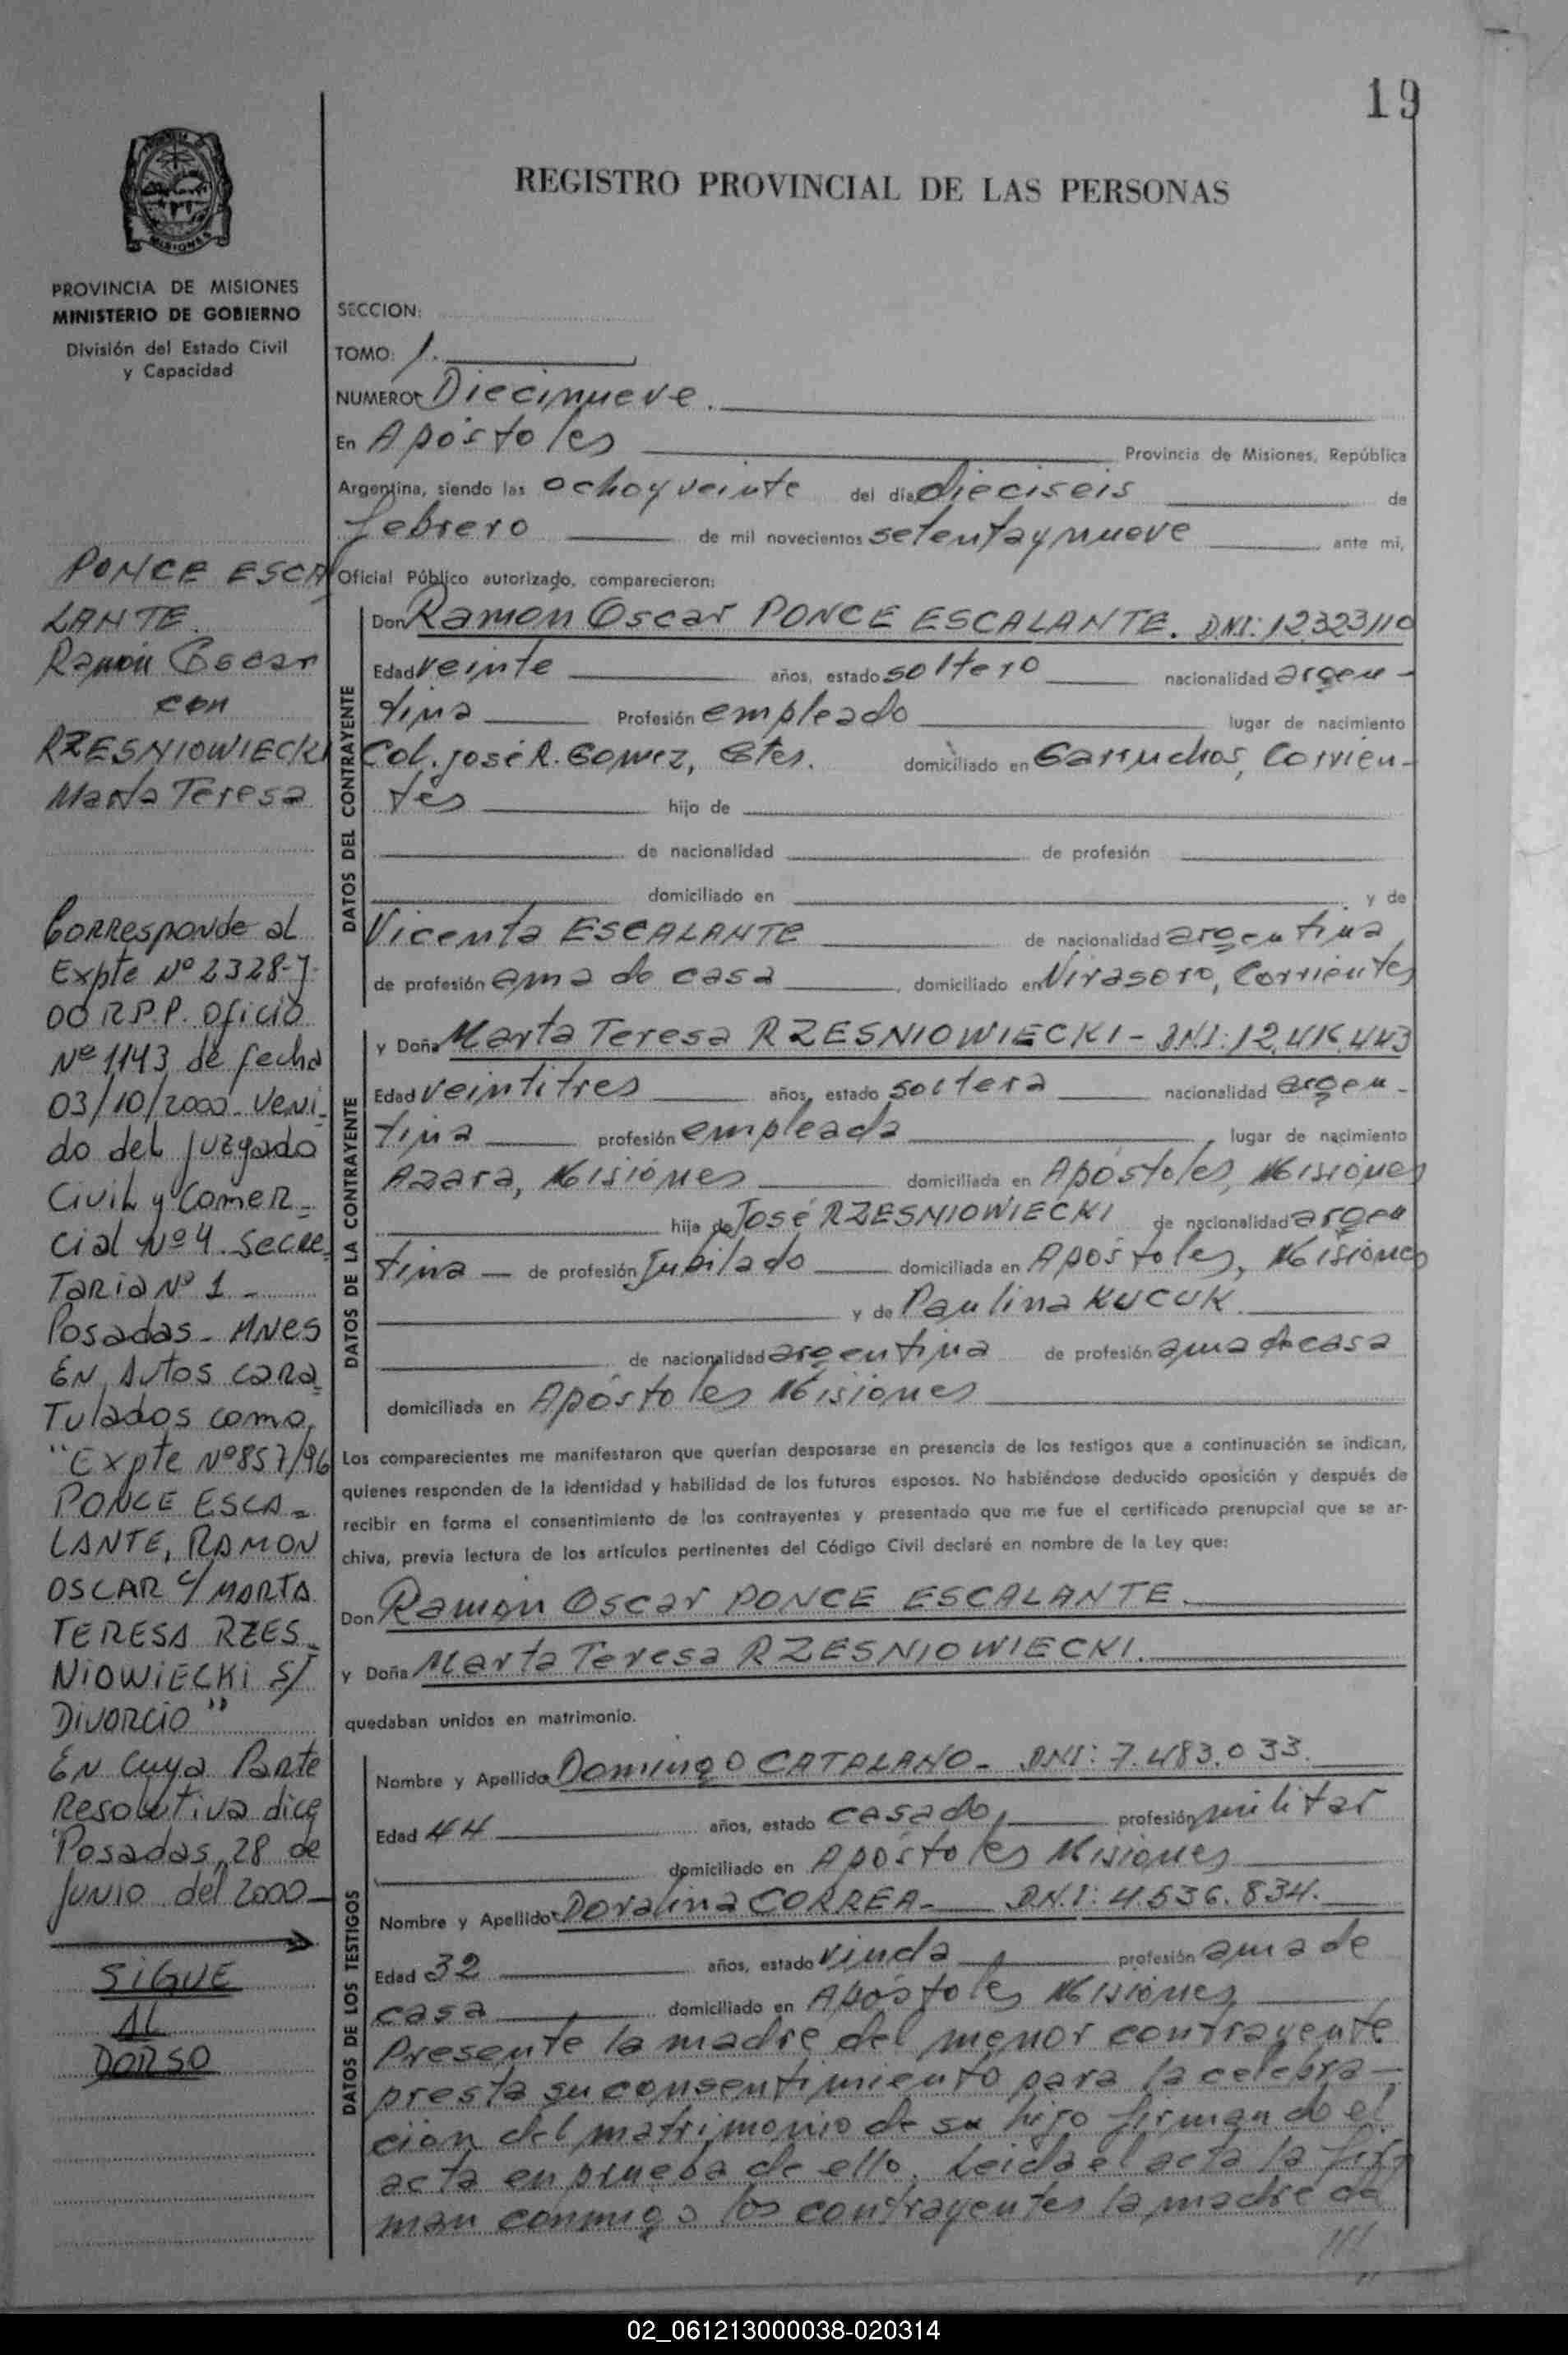 19
REGISTRO PROVINCIAL DE LAS PERSONAS
MISIONES
PROVINCIA DE MISIONES
MINISTERIO DE GOBIERNO
División del Estado Civil
y Capacidad
PONCE ESCA
LANTE
Ramón Oscar
con
RZESNIOWIECKI
Marta Teresa
Corresponde al
Expte Nº 2328-J-
00 R.P.P. Oficio
Nº 1143 de fecha
03/10/2000. Veni-
do del Juzgado
Civil y Comer-
cial Nº 4. Secre-
Taria Nº 1 -
Posadas - MNES
EN Autos cara-
Tulados como,
"Expte Nº 857/96
PONCE ESCA-
LANTE, RAMON
OSCAR C/ MARTA
TERESA RZES-
NIOWIECKI S/
DIVORCIO"
En cuya Parte
Resolutiva dice
"Posadas, 28 de
Junio del 2000-
SIGUE
AL
DORSO
SECCION:
TOMO: 1.
NUMERO: Diecinueve.
En Apóstoles Provincia de Misiones, República
Argentina, siendo las ocho y veinte del día dieciseis de
febrero de mil novecientos setenta y nueve ante mi,
Oficial Público autorizado, comparecieron:
DATOS DEL CONTRAYENTE
Don Ramon Oscar PONCE ESCALANTE. DNI: 12.323.110
Edad veinte años, estado soltero nacionalidad argen-
tina Profesión empleado lugar de nacimiento
Col. José R. Gomez, Ctes. domiciliado en Garruchos, Corrien-
tes hijo de
de nacionalidad de profesión
domiciliado en y de
Vicenta ESCALANTE de nacionalidad argentina,
de profesión ama de casa, domiciliado en Virasoro, Corrientes
DATOS DE LA CONTRAYENTE
y Doña Marta Teresa RZESNIOWIECKI - DNI: 12.416.443
Edad veintitres años, estado soltera nacionalidad argen-
tina profesión empleada, lugar de nacimiento
Azara, Misiones domiciliada en Apóstoles, Misiones
hija de José RZESNIOWIECKI de nacionalidad argen
tina - de profesión Jubilado domiciliada en Apóstoles, Misiones
y de Paulina KUCUK.
de nacionalidad argentina de profesión ama de casa
domiciliada en Apóstoles Misiones
Los comparecientes me manifestaron que querían desposarse en presencia de los testigos que a continuación se indican,
quienes responden de la identidad y habilidad de los futuros esposos. No habiéndose deducido oposición y después de
recibir en forma el consentimiento de los contrayentes y presentado que me fue el certificado prenupcial que se ar-
chiva, previa lectura de los artículos pertinentes del Código Civil declaré en nombre de la Ley que:
Don Ramón Oscar PONCE ESCALANTE.
y Doña Marta Teresa RZESNIOWIECKI.
quedaban unidos en matrimonio.
DATOS DE LOS TESTIGOS
Nombre y Apellido Domingo CATALANO - DNI: 7.483.033.
Edad 44 años, estado casado, profesión militar
domiciliado en Apóstoles Misiones
Nombre y Apellido: Doralina CORREA - DN.I: 4.536.834.
Edad 32 años, estado viuda, profesión ama de
casa domiciliado en Apóstoles Misiones
Presente la madre del menor contrayente
presta su consentimiento para la celebra-
ción del matrimonio de su hijo firmando el
acta en prueba de ello. Leida el acta la fir-
man conmigo los contrayentes la madre de
///
02_061213000038-020314